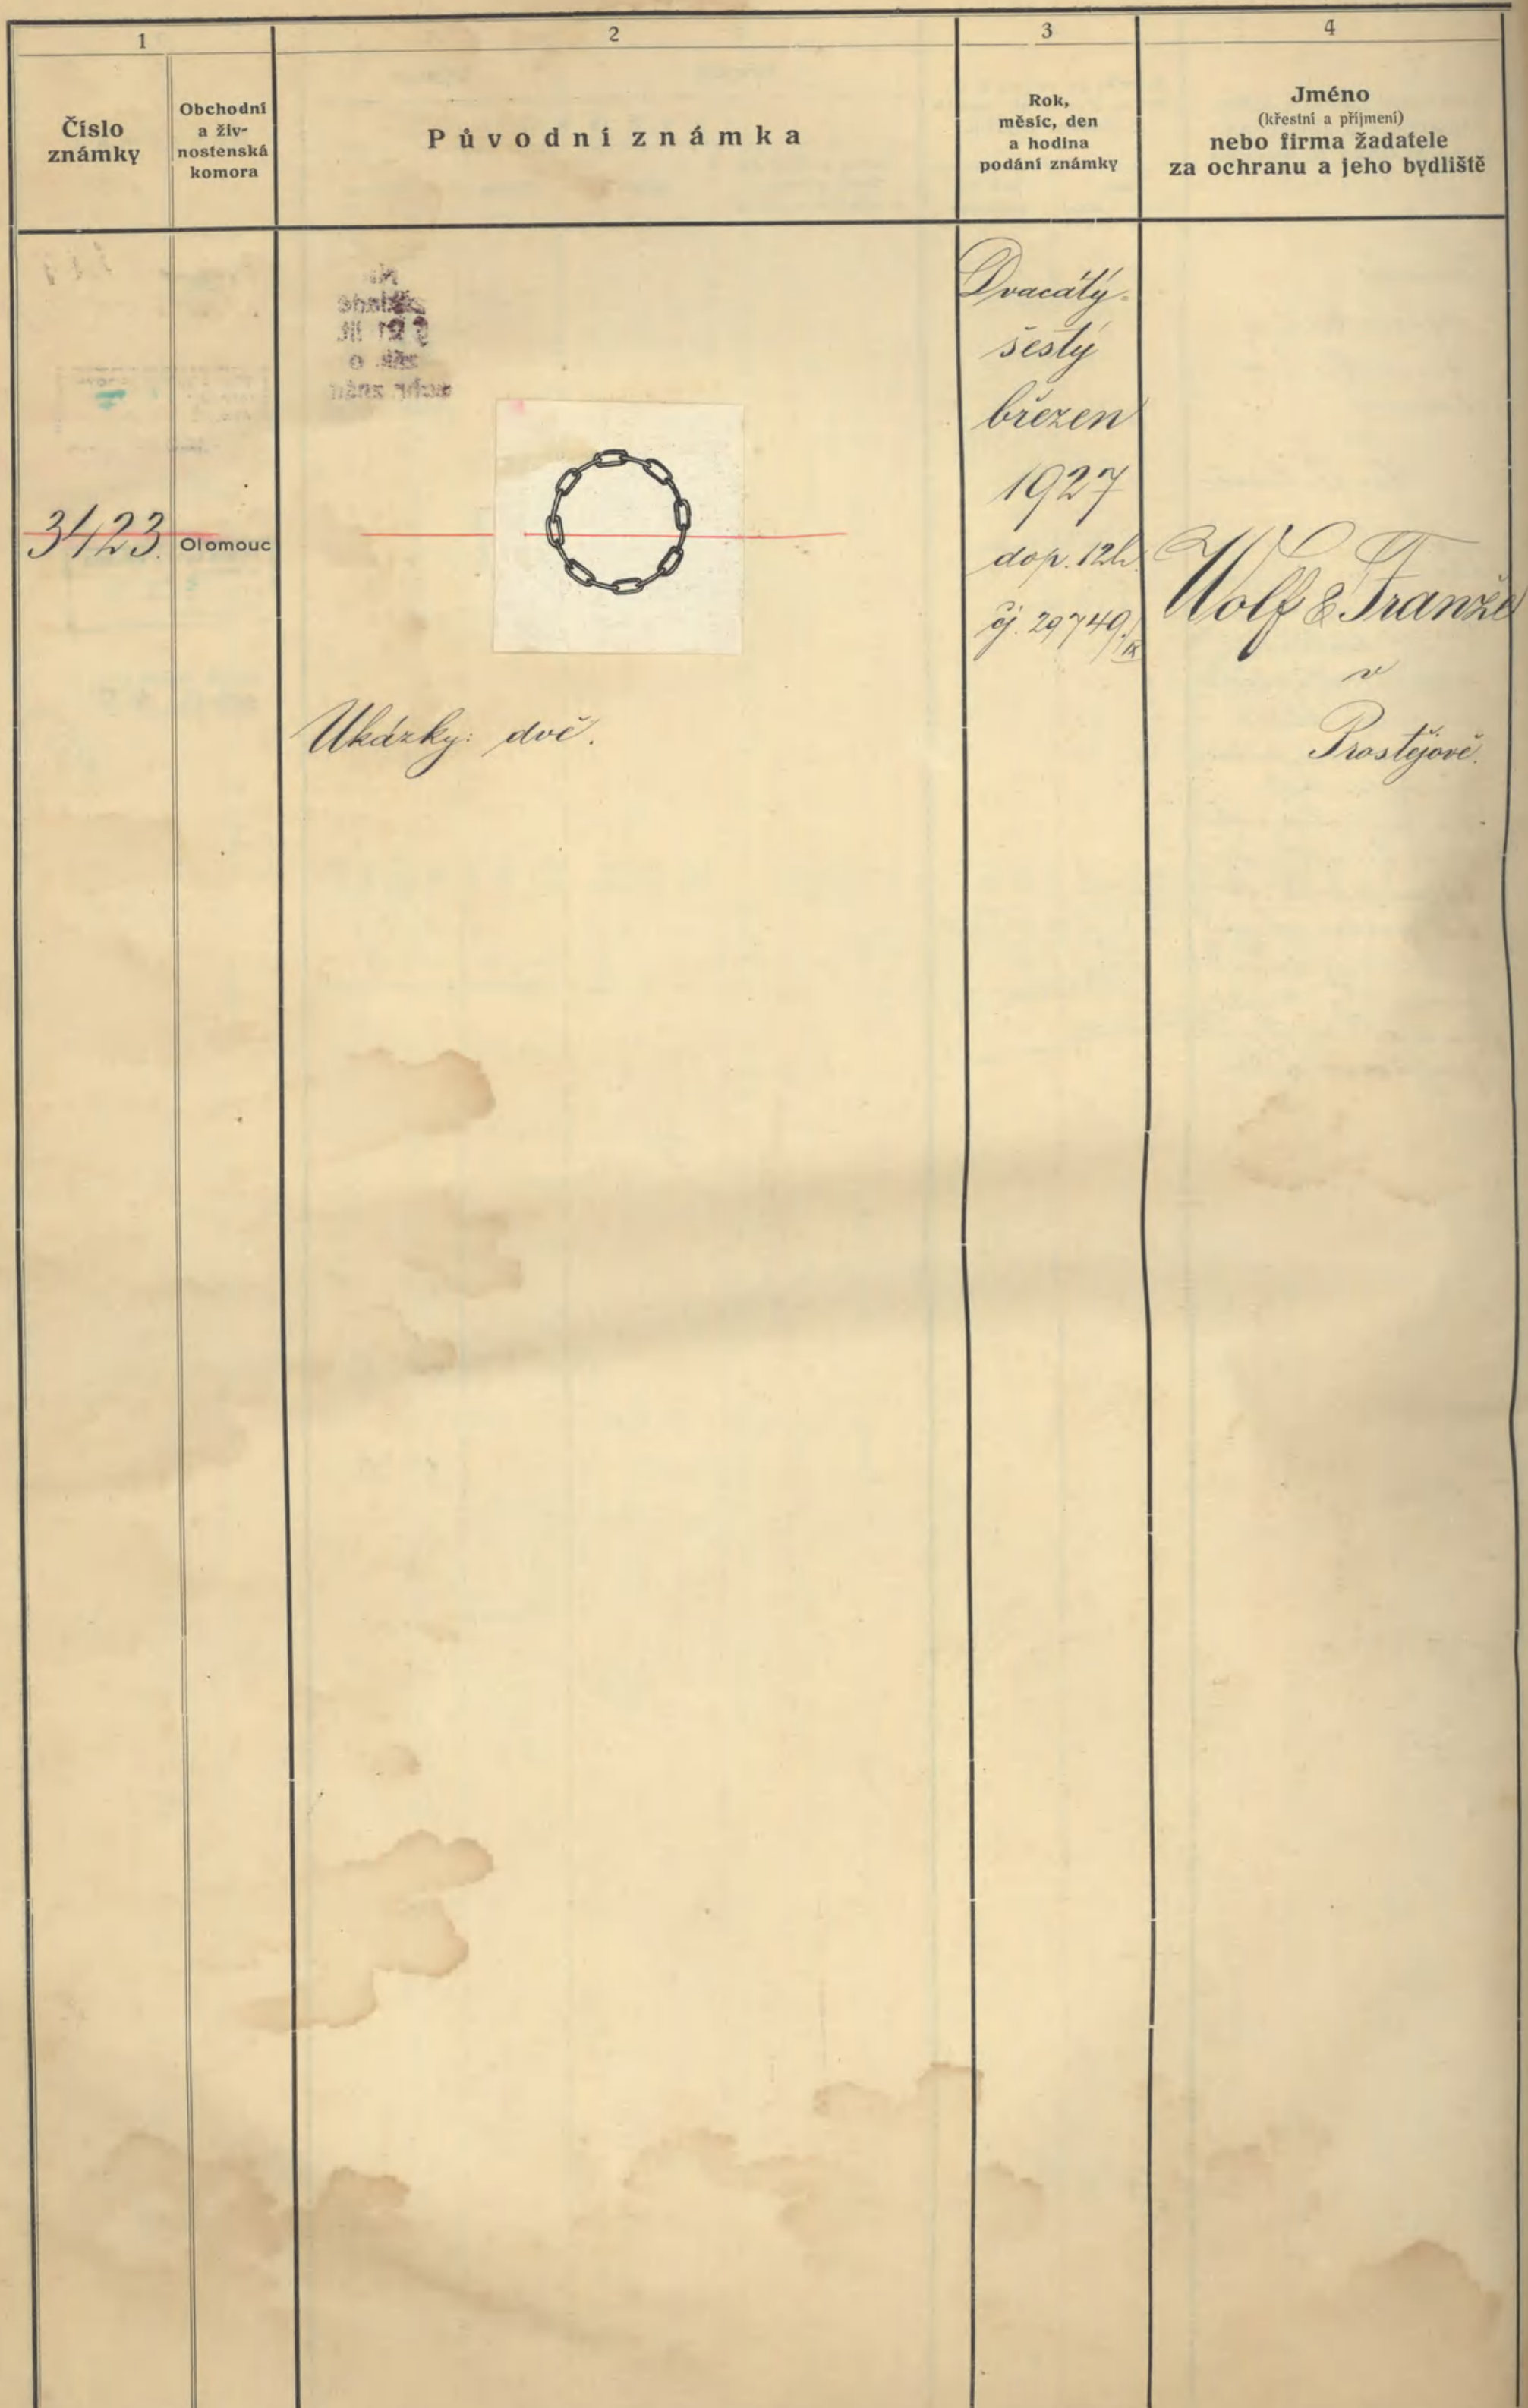 1
2
3
4
Číslo
známky
Obchodní
a živ-
nostenská
komora
Původní známka
Rok,
měsíc, den
a hodina
podání známky
Jméno
(křestní a příjmení)
nebo firma žadatele
za ochranu a jeho bydliště
3423.
Olomouc
Dvacátý
šestý
březen
1927
dop. 12h.
čj. 29749/IX
Wolf &
v
Prostějově.
Ukázky: dvě.